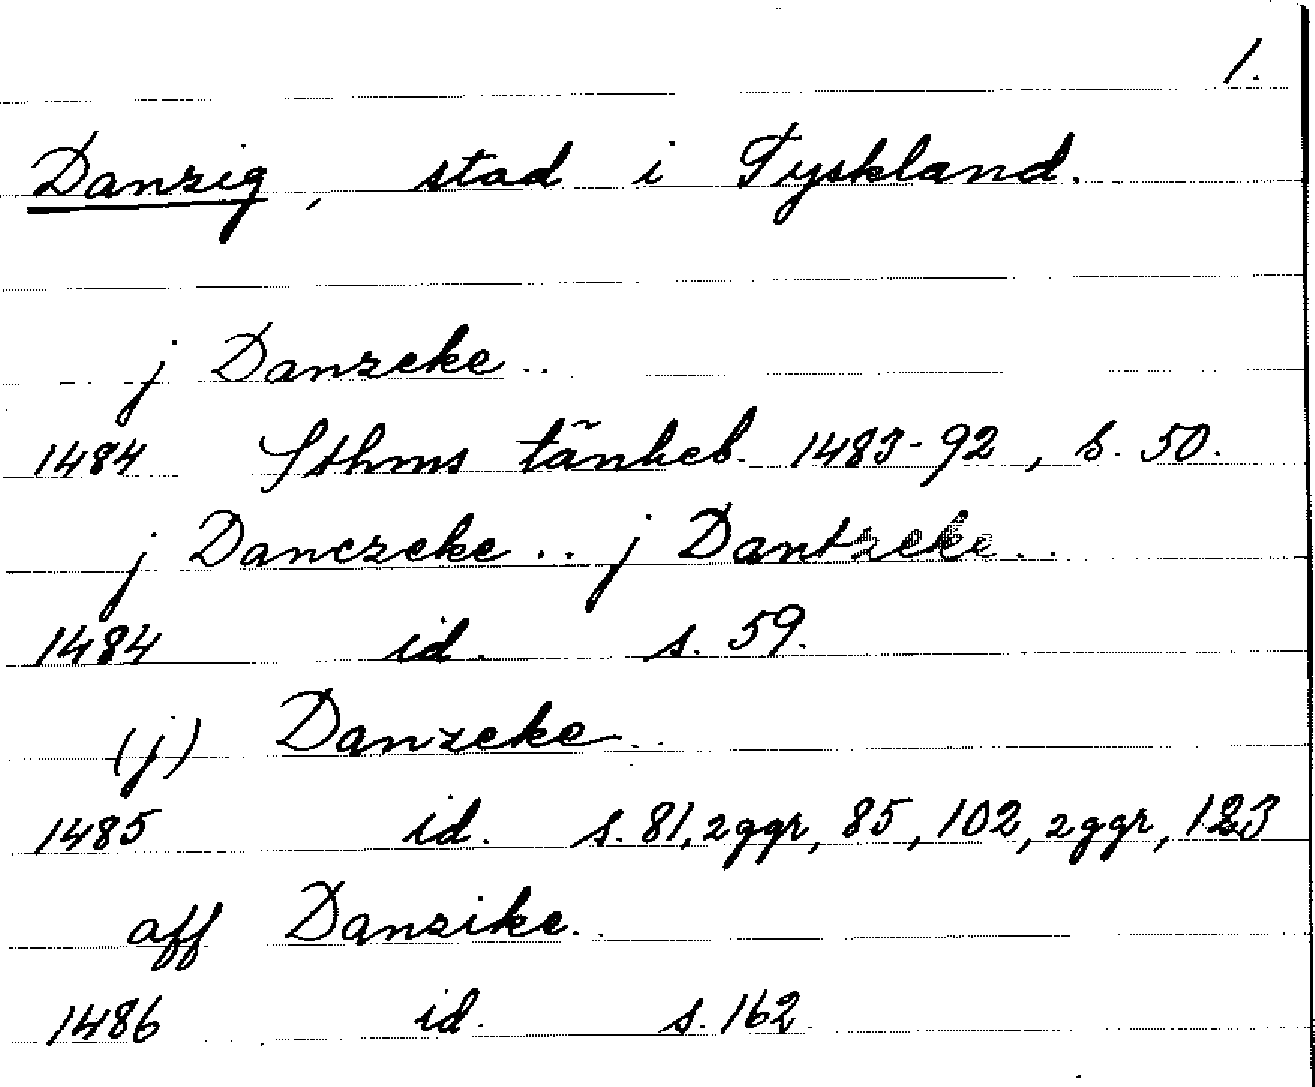 1.
Danzig, stad i Tyskland.
j Danzeke..
1484 Sthms tänkeb. 1483-92, s. 50.
j Danczeke.. j Dantzeke..
1484 id. s. 59.
(j) Danzeke..
1485 id. s. 81, 2ggr, 85, 102, 2ggr, 123
aff Danzike..
1486 id. s. 162